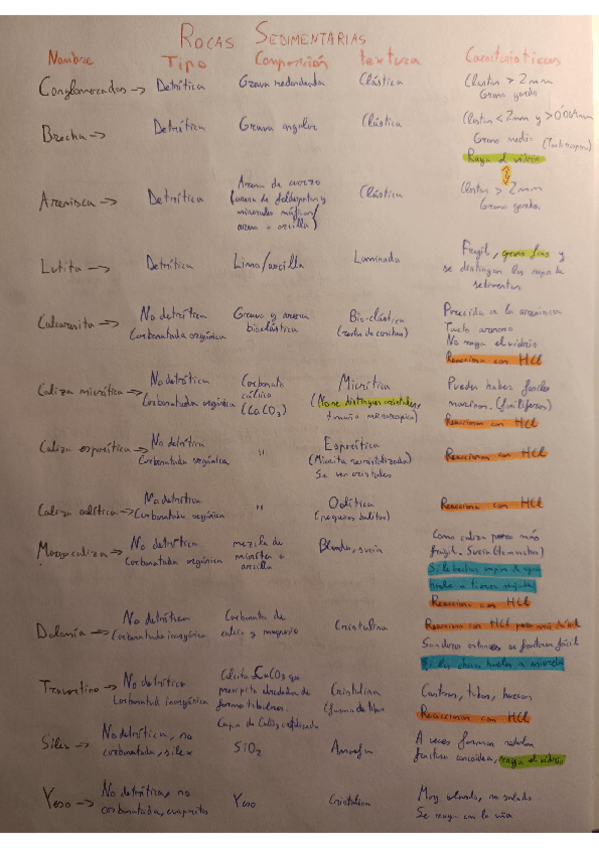 ROCAS SEDIMENTARIAS
Nombre Tipo Composición textura Características
Conglomerados → Detrítica Grava redondeada Clástica Clastos > 2mm
Grano gordo
Brecha → Detrítica Grava angular Clástica Clastos < 2mm y >
Grano medio
Raya el vidrio
Arenisca → Detrítica Arena de cuarzo Clástica Clastos > 2mm
(arena de feldespatos y Grano gordo
minerales máficos/
arcilla)
Lutita → Detrítica Limo/arcilla Laminada Fragil, grano fino y
se distinguen las capas de
sedimentos
Calcarenita → No detrítica Grava y arena Bio-clástica Parecida a la arenisca
Carbonatada orgánica bioclástica (restos de conchas) Tacto arenoso
No raya el vidrio
Reacciona con HCl
Caliza micrítica → No detrítica Carbonato Micrítica Pueden haber fosiles
Carbonatada orgánica cálcico (No se distinguen cristales, marinos. (fosilíferas)
(CaCO₃) tamaño microscopico) Reacciona con HCl
Caliza esparítica → No detrítica " Esparítica Reacciona con HCl
Carbonatada orgánica (Micrita recristalizada)
Se ven cristales
Caliza oolítica → No detrítica " Oolítica Reacciona con HCl
Carbonatada orgánica (pequeños oolitos)
Margocaliza → No detrítica mezcla de Blanda, sucia Como caliza pero más
Carbonatada orgánica micrita o fragil. Sucia
arcilla Si le echas
huele a tierra mojada
Reacciona con HCl
Dolomía → No detrítica Carbonato de Cristalina Reacciona con HCl pero más débil
Carbonatada inorgánica calcio y magnesio
Travertino → No detrítica Calcita CaCO₃ que Cristalina Cantos, tubos, huecos
Carbonatada inorgánica precipita alrededor de Reacciona con HCl
forma tubulares.
Silex → No detrítica, no SiO₂ Amorfa A veces forman nodulos
carbonatada, silex fractura concoidea, raya el vidrio
Yeso → No detrítica, no Yeso Cristalina Muy blando, no salado
carbonatada, evaporita Se raya con la uña